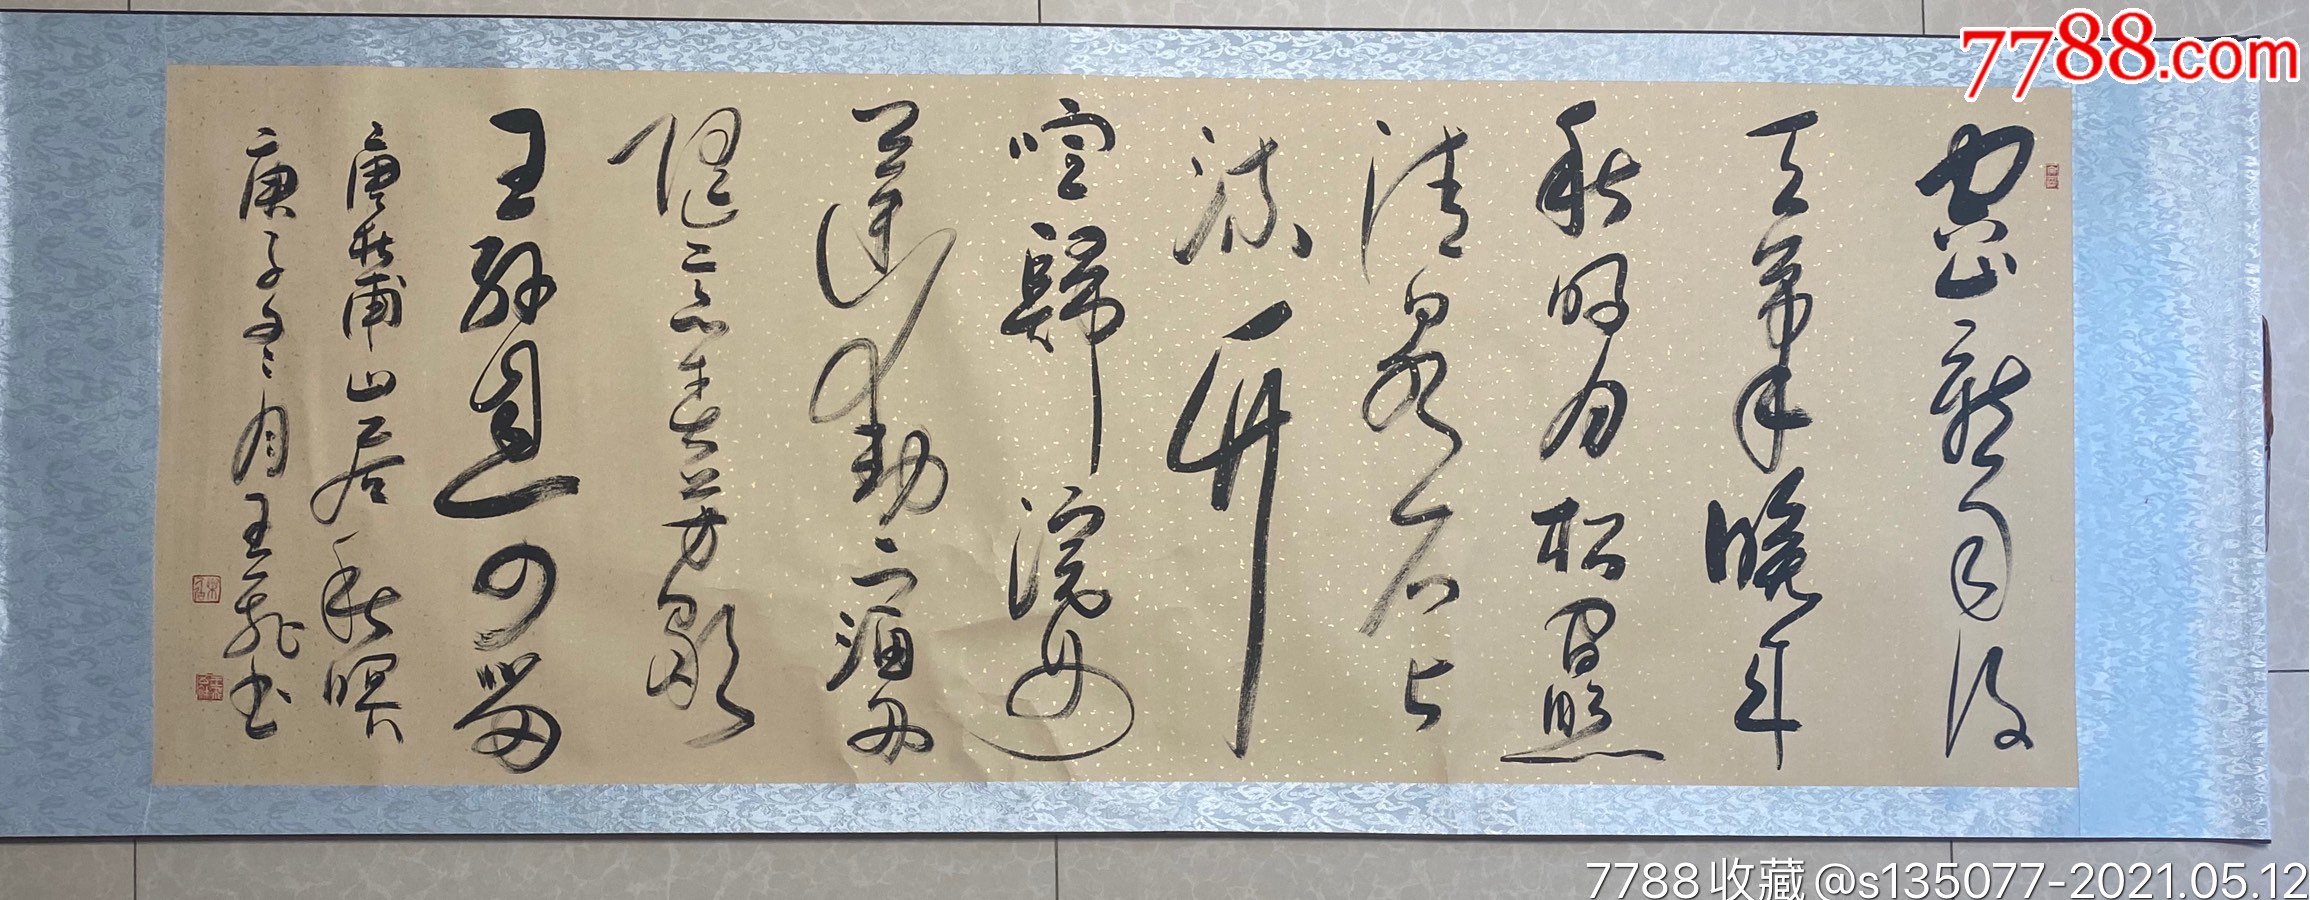 空山新雨後
天氣晚來
秋明月松間照
清泉石上
流竹
喧歸浣女
蓮動下漁舟
隨意春芳歇
王孫自可留
唐杜甫山居秋暝
庚子冬月王书
7788.com
7788收藏@s135077-2021.05.12